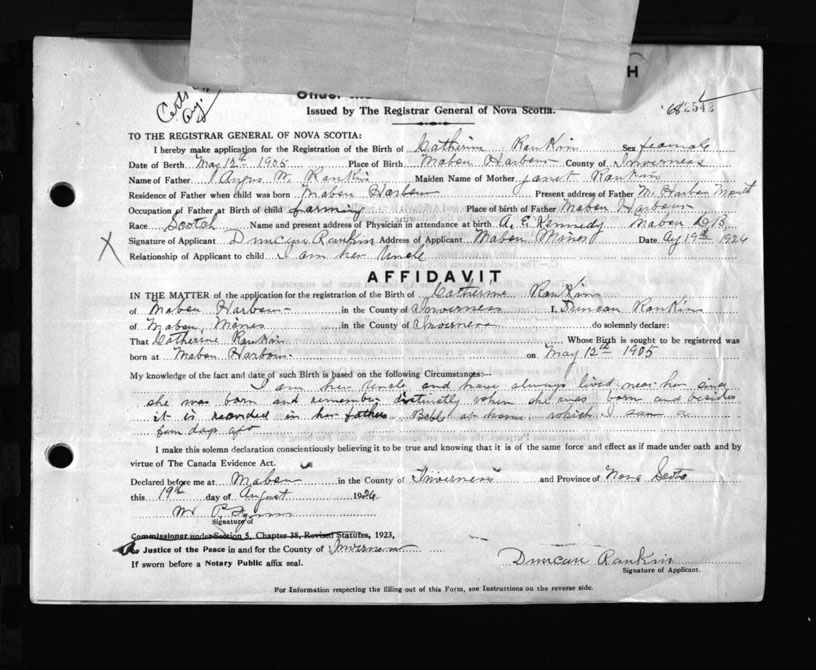 H
Under the
Certs
Issued by The Registrar General of Nova Scotia. 2542
TO THE REGISTRAR GENERAL OF NOVA SCOTIA:
I hereby make application for the Registration of the Birth of Catherine Rankin Sex female
Date of Berth May 12th 1905 Place of Birth Mabou Harbour County of Inverness
Name of Father Angus W. Rankin Maiden Name of Mother Janet Rankin
Residence of Father when child was born Mabou Harbour Present address of Father M. Harbou Mouth
Occupation of Father at Birth of child farming Place of birth of Father Mabou Harbour
Race Scotch Name and present address of Physician in attendance at birth A. E. Kennedy Mabou C.B.
X Signature of Applicant Duncan Rankin Address of Applicant Mabou Mines Date Ag 19th 1926
Relationship of Applicant to child I am her Uncle
AFFIDAVIT
IN THE MATTER of the application for the registration of the Birth of Catherine Rankin
of Mabou Harbour in the County of Inverness I, Duncan Rankin
of Mabou, Mines in the County of Inverness do solemnly declare:
That Catherine Rankin Whose Birth is sought to be registered was
born at Mabou Harbour on May 12th 1905
My knowledge of the fact and date of such Birth is based on the following Circumstances:—
I am her Uncle and have always lived near her since
she was born and remember distinctly when she was born and besides
it is recorded in her fathers Bible at home which I saw a
few days ago
I make this solemn declaration conscientiously believing it to be true and knowing that it is of the same force and effect as if made under oath and by
virtue of The Canada Evidence Act.
Declared before me at Mabou in the County of Inverness and Province of Nova Scotia
this 19th day of August 1926
Signature of
Commissioner under Section 5, Chapter 38, Revised Statutes, 1923,
or Justice of the Peace in and for the County of Inverness
If sworn before a Notary Public affix seal.
Duncan Rankin
Signature of Applicant.
For Information respecting the filling out of this Form, see Instructions on the reverse side.